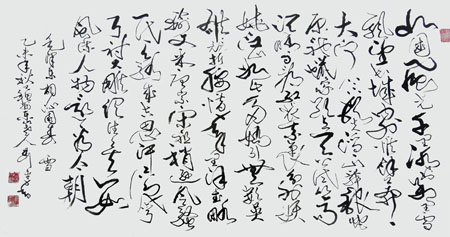 北国风光千里冰封万里雪
飘望长城内外惟余莽莽
大河上下顿失滔滔山舞银蛇
原驰蜡象欲与天公试比高
须晴日看红装素裹分外妖
娆江山如此多娇引无数英
雄竞折腰惜秦皇汉武略
输文采唐宗宋祖稍逊风骚
一代天骄成吉思汗只识弯
弓射大雕俱往矣数
风流人物还看今朝
毛泽东词沁园春 雪
乙未年秋